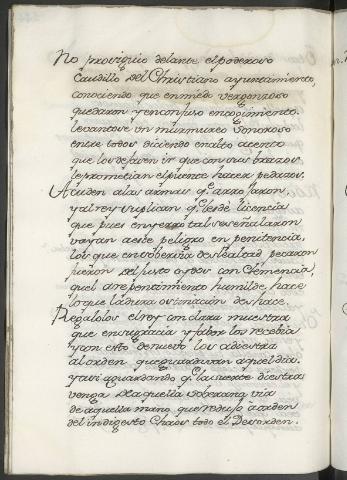 No prosiguio delante el poderoso
Caudillo del Christiano ayuntamiento,
conociendo que en miedo vergonzoso
quedaron y en confuso encogimiento.
levantose un murmureo sonoroso
entre todos diciendo en alto acento
que los dejasen ir que con sus brazos
le prometian el puente hacer pedazos.
Acuden a las armas q.e arrojaron,
y al rey suplican q.e les dè licencia
que pues en yerro tal se señalaron
vayan a este peligro en penitencia,
los que en soberbia desleal tad pecaron
fueron del justo oydos con clemencia,
quel arrepentimiento humilde hace
lo que la dura ostinacion deshace.
Regalolos el rey con clara muestra
que en su gracia y fabor los recebia
y con esto de nuevo los adiestra
al orden que guardarian aquel dia.
y assi aguardando q.e la suerte diestra
venga de aquella soberana via
de aquella mano que redujo a orden
del indigesto Chaos todo el Desorden.